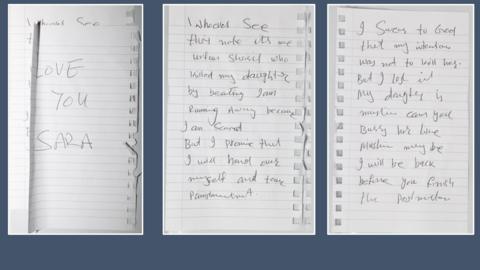 I whoever See
LOVE
YOU
SARA
I whoever See
this note its me
urfan Sharif who
killed my daughter
by beating I am
Running Away because
I am Scared
But I promise that
I will hand over
myself and take
Punishment
I Swear to God
that my intention
was not to kill her.
But I lost it
My daughter is
muslim can you
Bury her like
Muslim may be
I will be back
before you finish
the Postmortem